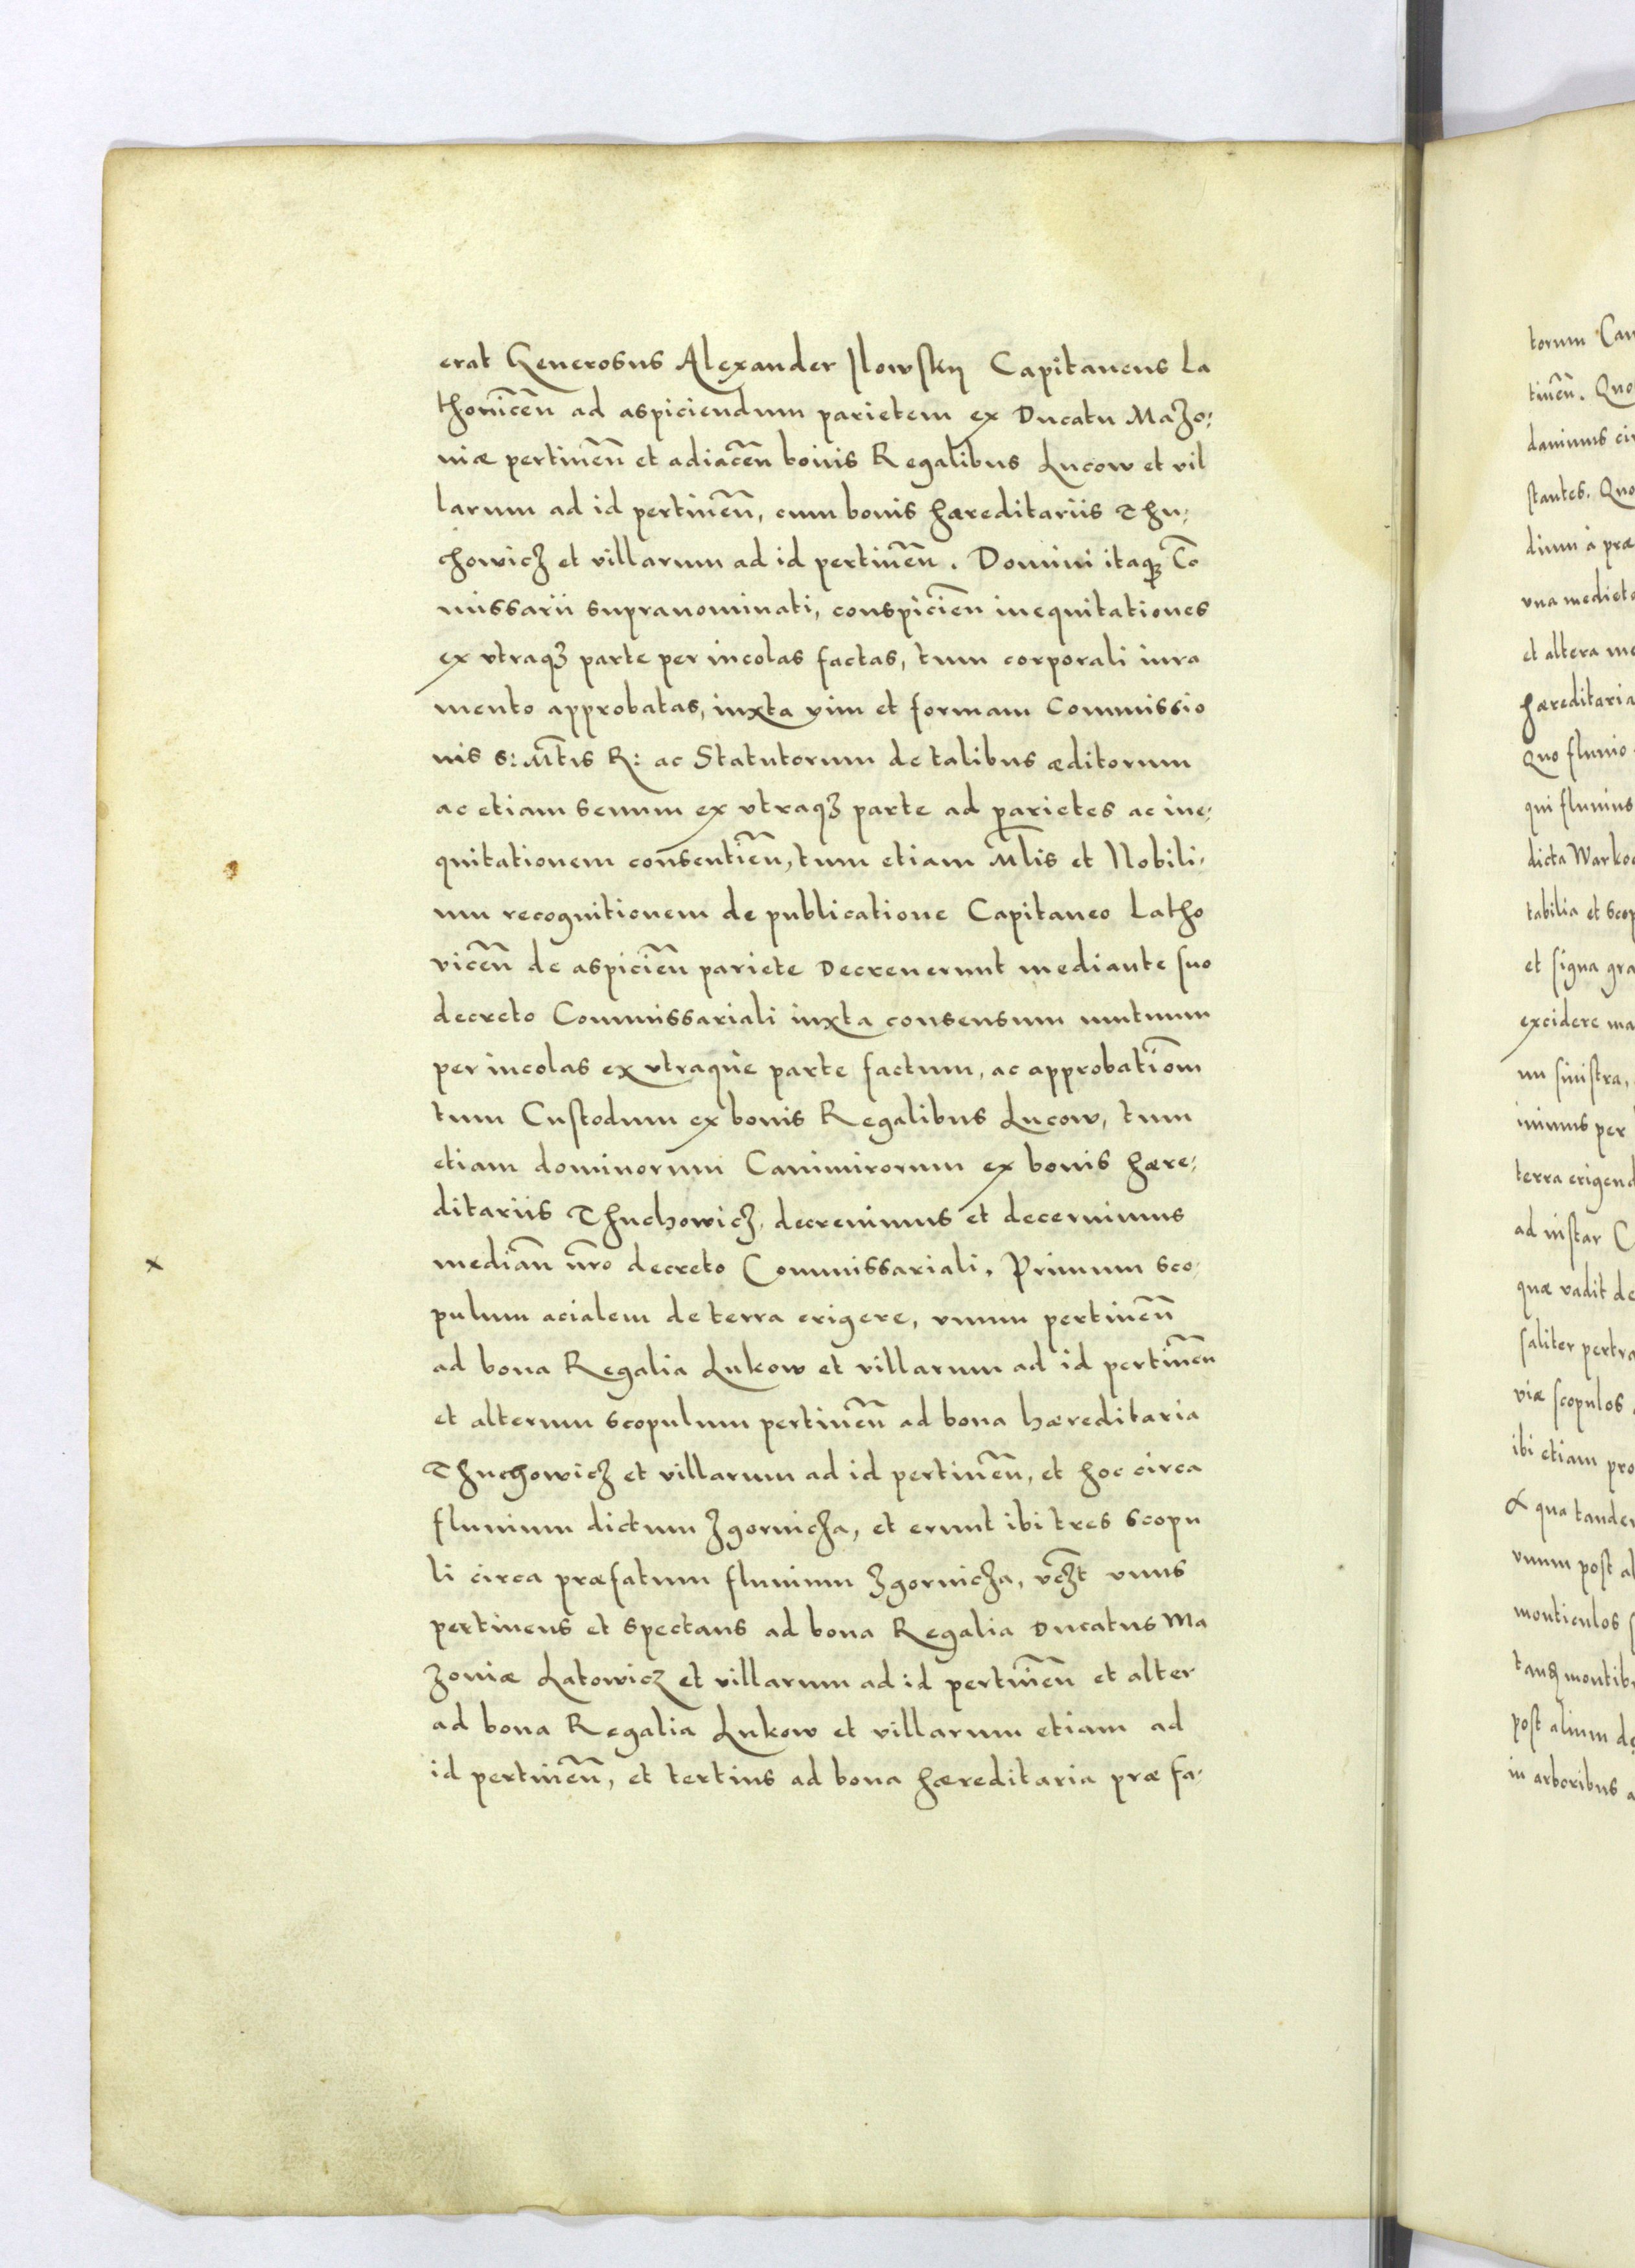 erat Generosus Alexander Ilowskij Capitaneus La
thovicen̄ ad aspiciendum parietem ex Ducatu Mazo⸗
uiæ pertinen̄ et adiacen̄ bonis Regalibus Lucow et vil
larum ad id pertinen̄, cum bonis hæreditariis Thu⸗
chowicz et villarum ad id pertinen̄. Domini itaqꝫ Cō
missarii supranominati, conspicien̄ inequitationes
ex vtraqꝫ parte per incolas factas, tum corporali iura
mento approbatas, iuxta vim et formam Commissio
nis S: Mt̄is R: ac Statutorum de talibus æditorum
ac etiam senum ex vtraqꝫ parte ad parietes ac ine⸗
quitationem consentien̄, tum etiam Ml̄is et Nobili⸗
um recognitionem de publicatione Capitaneo Latho
vicen̄ de aspicien̄ pariete Decreuerunt mediante suo
decreto Commissariali iuxta consensum mutuum
per incolas ex vtraque parte factum, ac approbatiōm
tum Custodum ex bonis Regalibus Lucow, tum
etiam dominorum Canimirorum ex bonis hære⸗
ditariis Thuchowicz, decreuimus et decernimus
x median̄ nr̄o decreto Commissariali. Primum sco⸗
pulum acialem de terra erigere, vnum pertinen̄
ad bona Regalia Lukow et villarum ad id pertinen̄
et alterum scopulum pertinen̄ ad bona hæreditaria
Thuchowicz et villarum ad id pertinen̄, et hoc circa
fluuium dictum Zgornicza, et erunt ibi tres scopu
li circa præfatum fluuium Zgornicza, vcꝫt vnus
pertinens et spectans ad bona Regalia Ducatus Ma
zouiæ Latowicz et villarum ad id pertinen̄ et alter
ad bona Regalia Lukow et villarum etiam ad
id pertinen̄, et tertius ad bona hæreditaria præfa⸗
torum
tinen̄. Quo
damimus
stantes. Quo
dium à præ
vna
et altera
hæreditaria
Quo fluuio
qui fluuius
dicta
tabilia et
et signa
excidere
nu sinistra,
imus per
terra
ad instar
quæ vadit de
saliter
viæ scopulos
ibi etiam pro
& qua
vnum post
monticulos
post alium
in arboribus